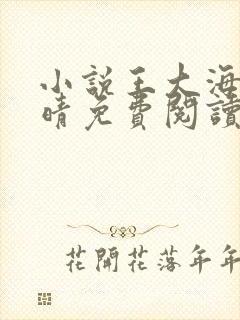 小説王大海
晴免費閱讀
花開花落年年